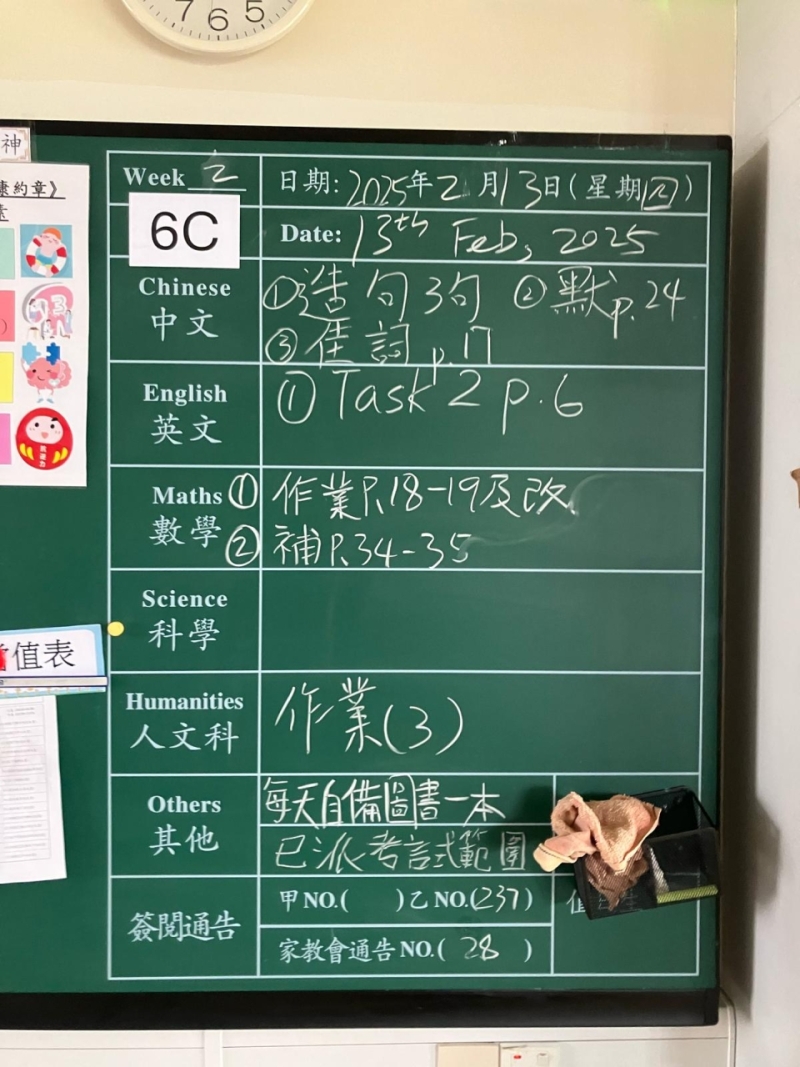 7 6 5
神
康約章》
Week 2
日期: 2025年2月13日(星期四)
6C
Date: 13th Feb, 2025
Chinese
中文
①造句3句 ②默p.24
③佳詞p.17
English
英文
① Task 2 p.6
Maths
數學
① 作業P.18-19及改
② 補P.34-35
Science
科學
值表
Humanities
人文科
作業(3)
Others
其他
每天自備圖書一本
已派考試範圍
簽閱通告
甲NO.( )乙NO.(237)
家教會通告NO.( 28 )
值